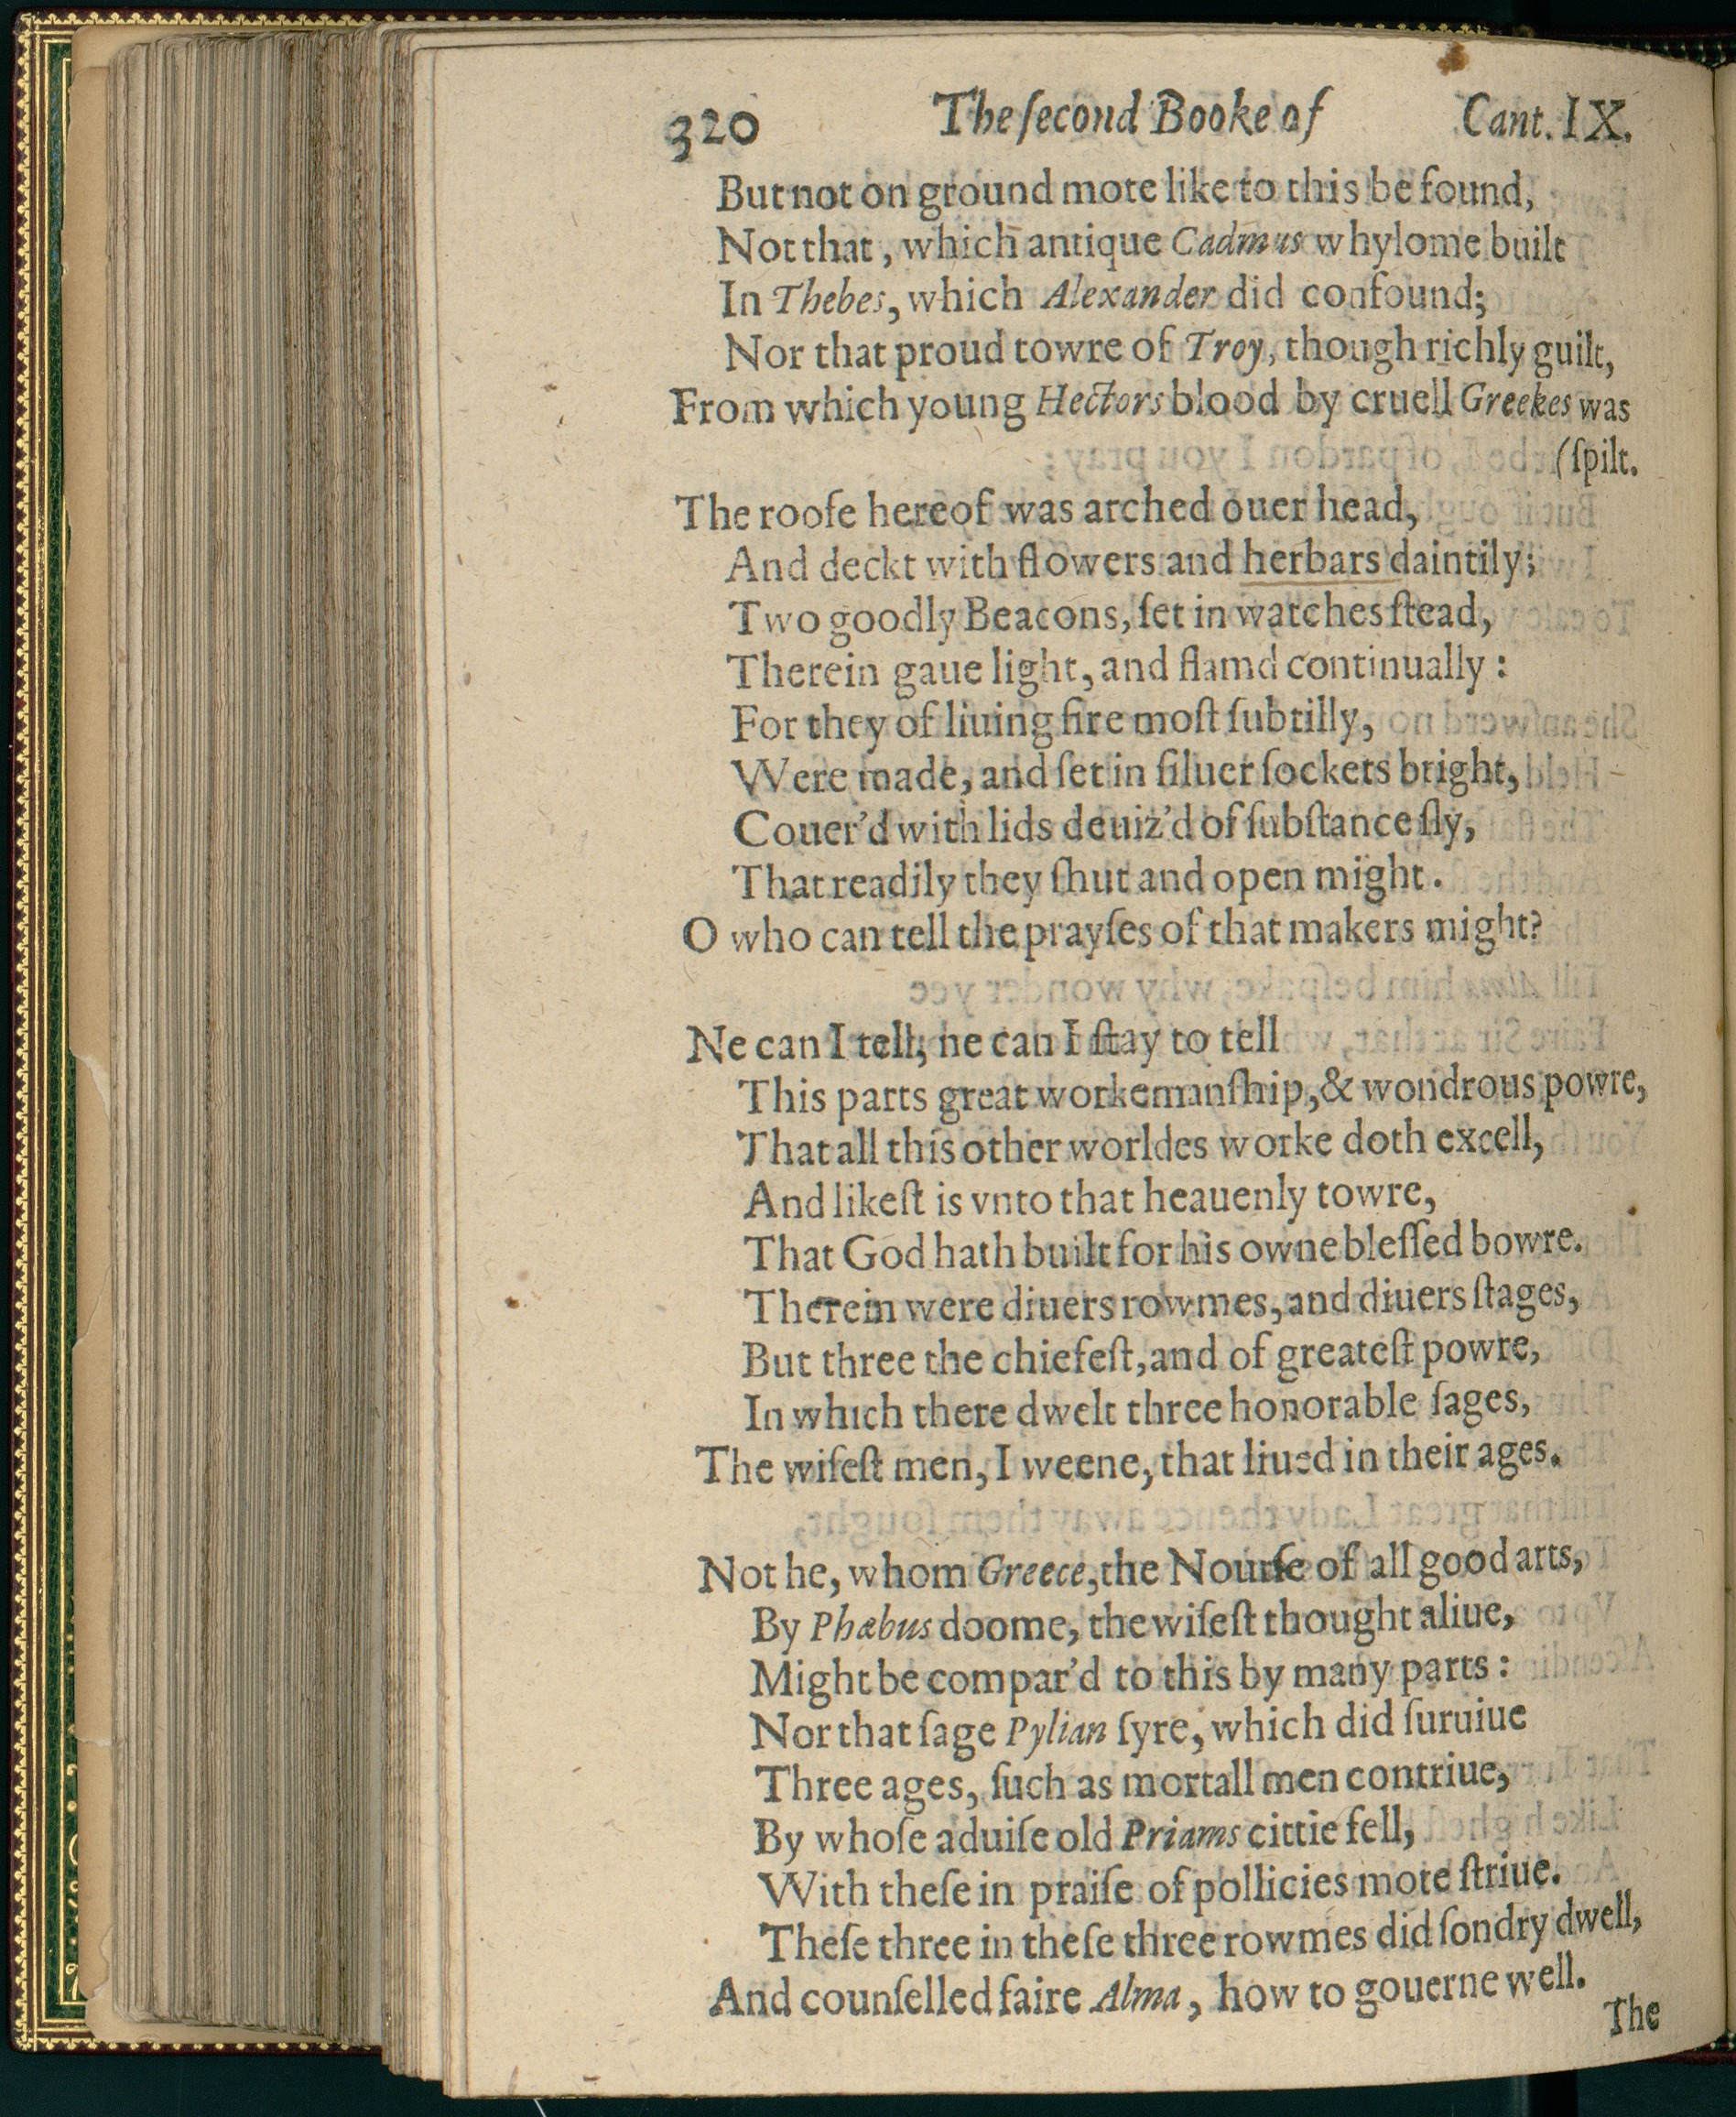 320 The ſecond Booke of Cant. IX.
But not on ground mote like to this be found,
Not that, which antique Cadmus whylome built
In Thebes, which Alexander did confound;
Nor that proud towre of Troy, though richly guilt,
From which young Hectors blood by cruell Greekes was
(ſpilt.
The roofe hereof was arched ouer head,
And deckt with flowers and herbars daintily;
Two goodly Beacons, ſet in watches ſtead,
Therein gaue light, and flamd continually:
For they of liuing fire moſt ſubtilly,
Were made, and ſet in ſiluer ſockets bright,
Couer'd with lids deuiz'd of ſubſtance ſly,
That readily they ſhut and open might.
O who can tell the prayſes of that makers might?
Ne can I tell, ne can I ſtay to tell
This parts great workemanſhip, & wondrous powre,
That all this other worldes worke doth excell,
And likeſt is vnto that heauenly towre,
That God hath built for his owne bleſſed bowre.
Therein were diuers rowmes, and diuers ſtages,
But three the chiefeſt, and of greateſt powre,
In which there dwelt three honorable ſages,
The wiſeſt men, I weene, that liued in their ages.
Not he, whom Greece, the Nourſe of all good arts,
By Phæbus doome, the wiſeſt thought aliue,
Might be compar'd to this by many parts:
Nor that ſage Pylian ſyre, which did ſuruiue
Three ages, ſuch as mortall men contriue,
By whoſe aduiſe old Priams cittie fell,
With theſe in praiſe of pollicies mote ſtriue.
Theſe three in theſe three rowmes did ſondry dwell,
And counſelled faire Alma, how to gouerne well.
The